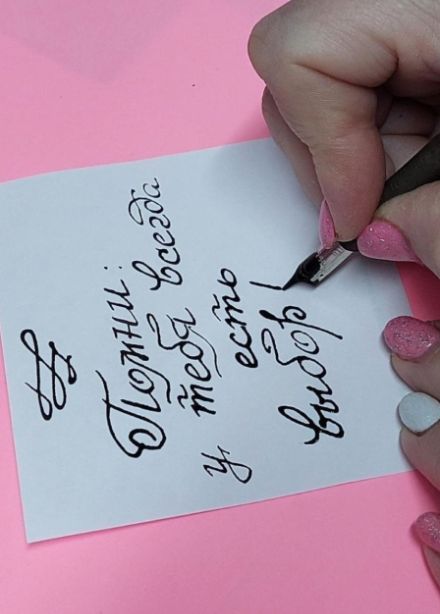 Помни:
у тебя всегда
есть
выбор!